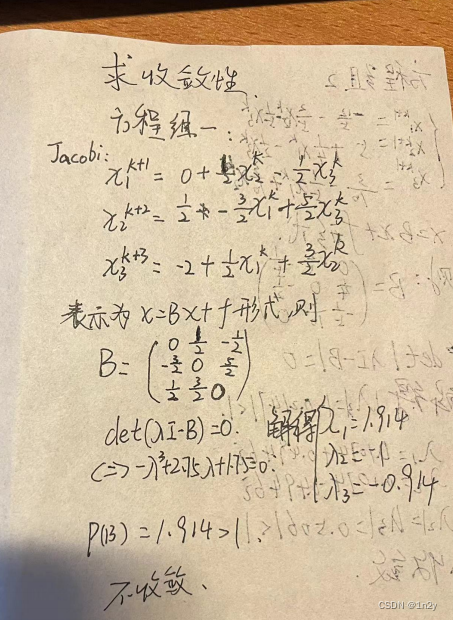 求收敛性
方程组一:
Jacobi:
x₁ᵏ⁺¹ = 0 + ½x₂ᵏ - ½x₃ᵏ
x₂ᵏ⁺² = ½ - 3/2x₁ᵏ + 5/2x₃ᵏ
x₃ᵏ⁺³ = -2 + ½x₁ᵏ + 3/2x₂ᵏ
表示为 x=Bx+f形式,则
B= (0 ½ -½
-3/2 0 5/2
½ 3/2 0)
det(λI-B)=0. 解得 λ₁=1.914
<=> -λ³+2.75λ+1.75=0. λ₂=-1
λ₃=-0.914
ρ(B)=1.914>1.
不收敛.
CSDN @1n2y